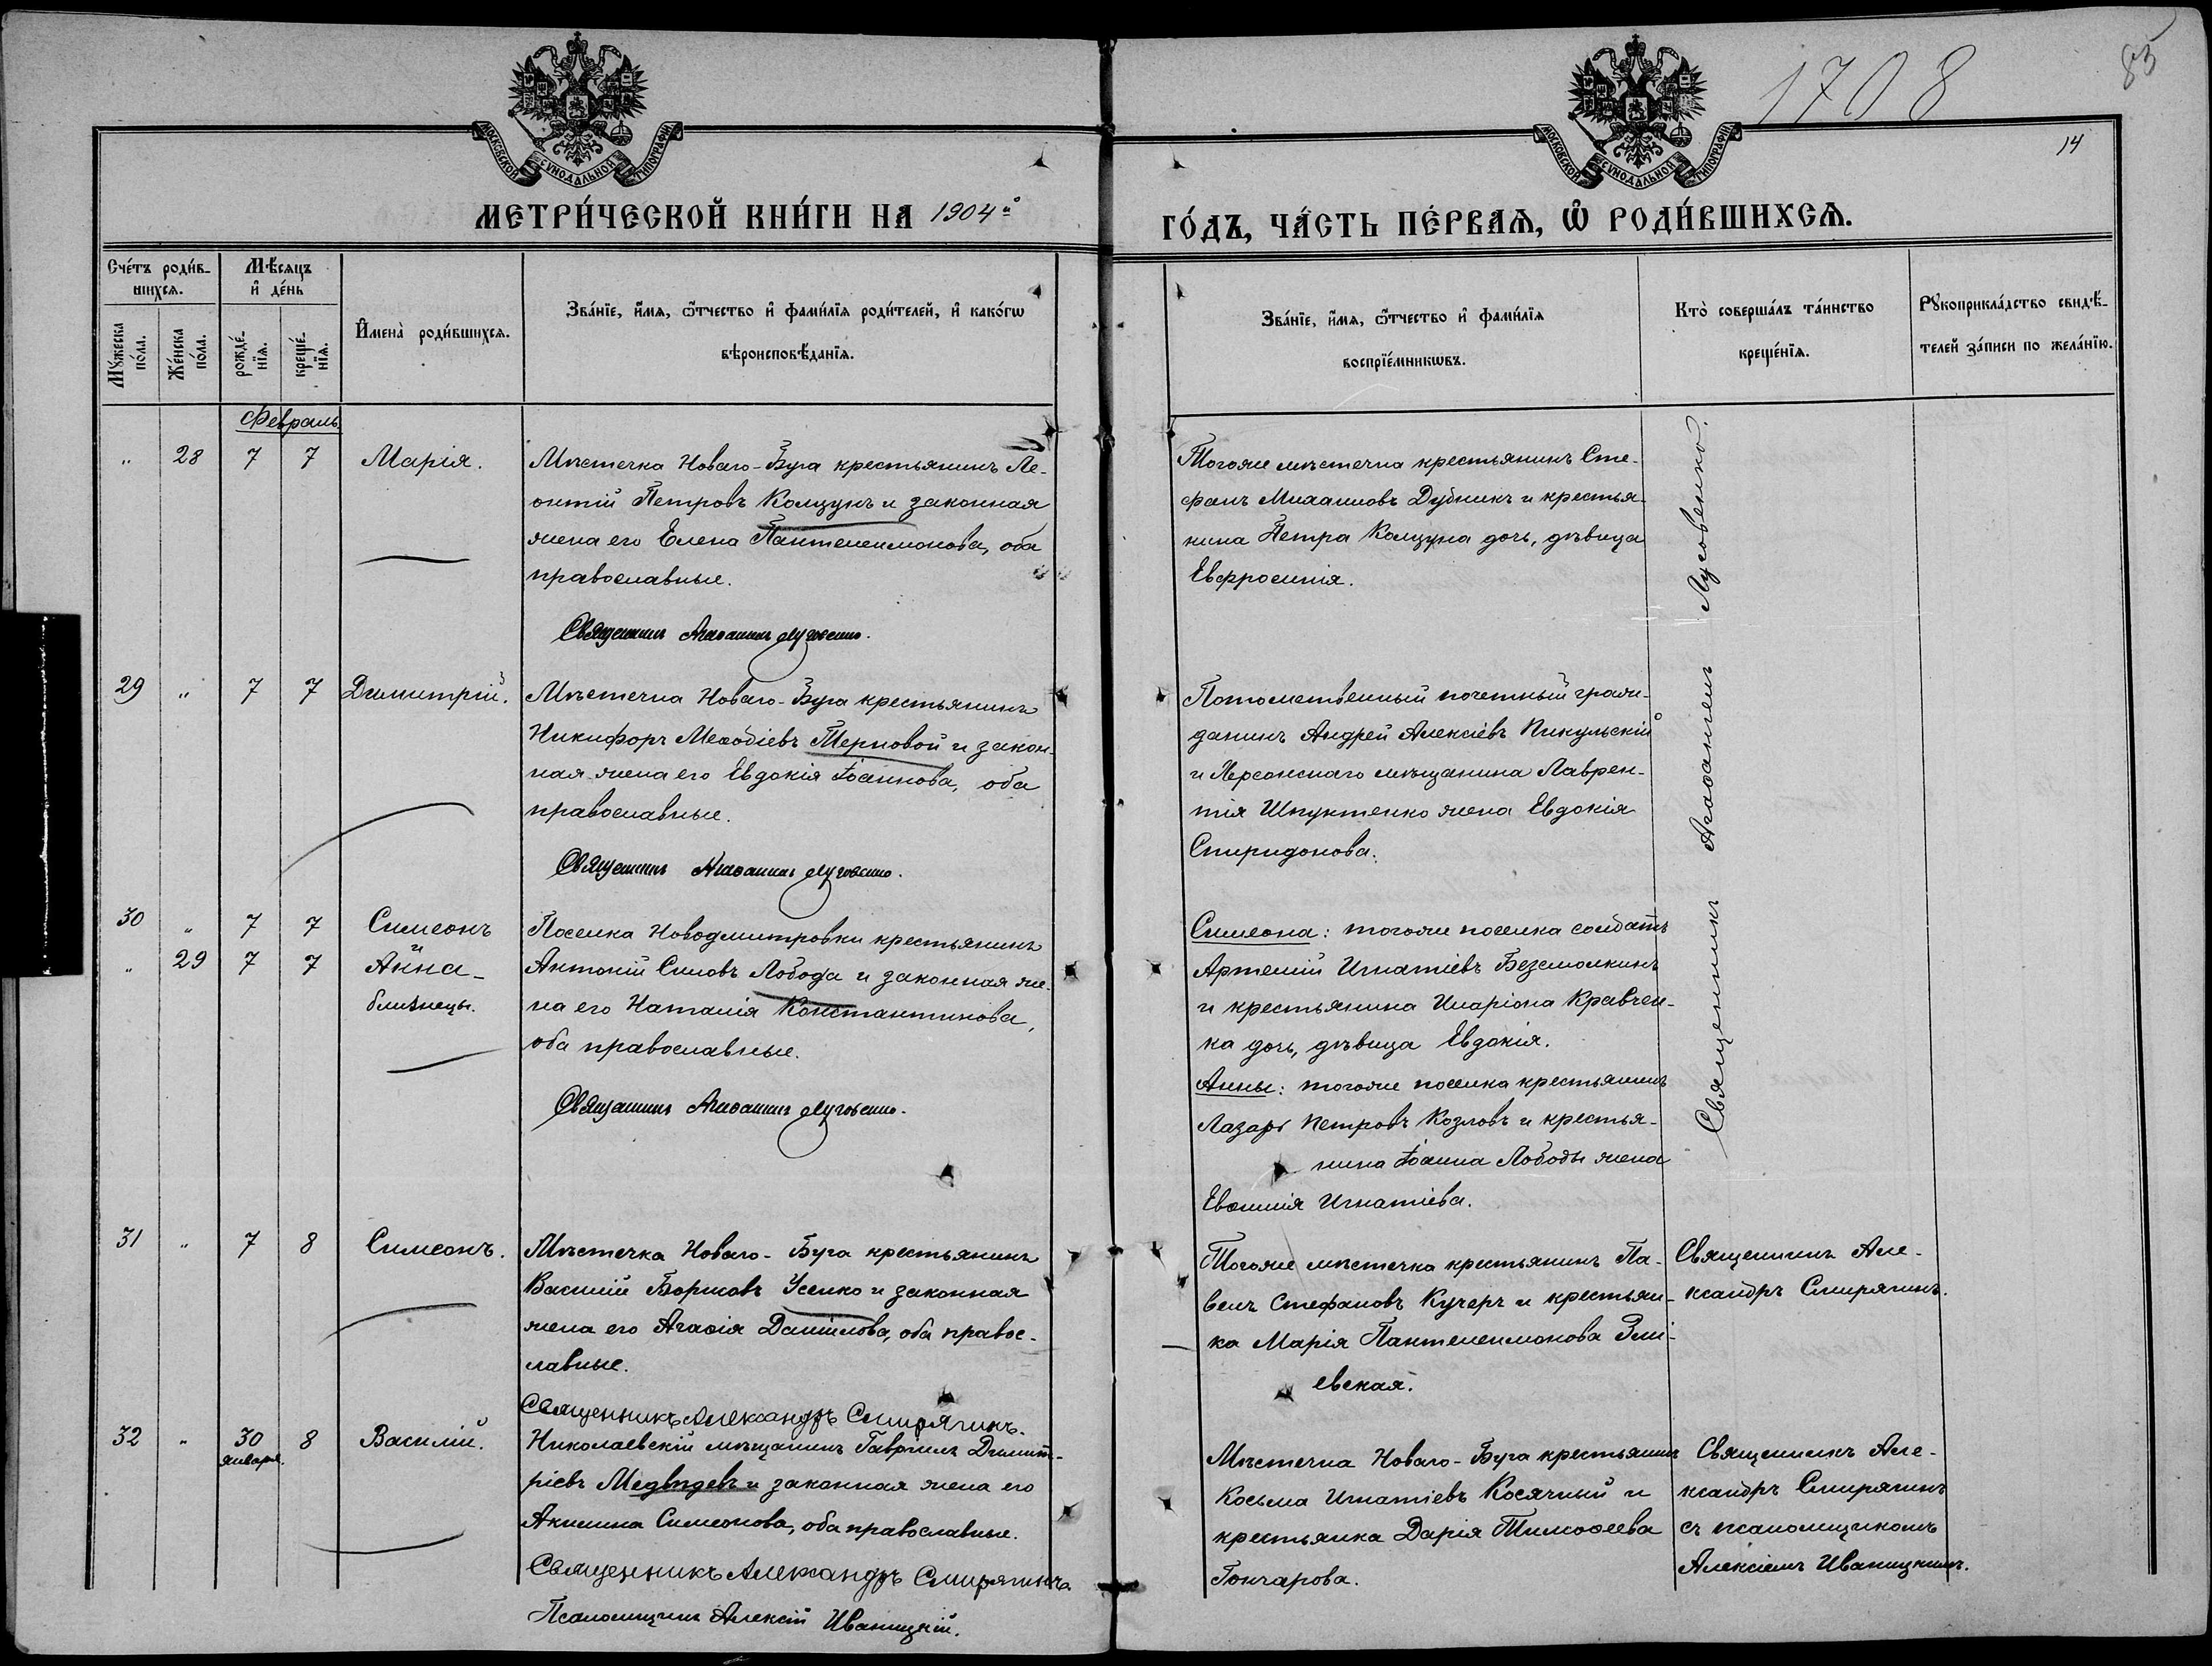 1708
85
14
МОСКОВСКОЙ СѴНОДАЛЬНОЙ ТИПОГРАФІИ
МОСКОВСКОЙ СѴНОДАЛЬНОЙ ТИПОГРАФІИ
МЕТРИ́ЧЕСКОЙ КНИ́ГИ НА 1904й
ГО́ДЪ, ЧА́СТЬ ПЕ́РВАѦ, Ѽ РОДИ́ВШИХСѦ.
Сче́тъ роди́в-
шихсѧ.
Мѣ́сяцъ
и҆ де́нь
Мꙋ́жеска
по́ла.
Же́нска
по́ла.
рожде́-
нїѧ.
креще́-
нїѧ.
И҆мена̀ роди́вшихсѧ.
Зва́нїе, и҆́мѧ, ѻ҆́тчество и҆ фами́лїѧ роди́телей, и҆ какѡ́гѡ
вѣроисповѣ́данїѧ.
Зва́нїе, и҆́мѧ, ѻ҆́тчество и҆ фами́лїѧ
воспрїе́мникѡвъ.
Кто̀ соверша́лъ та́инство
креще́нїѧ.
Рꙋкоприкла́дство свидѣ́-
телей за́писи по жела́нїю.
Февраль
„ 28 7 7 Марія.
Мѣстечка Новаго-Буга крестьянинъ Ле-
онтій Петровъ Колцунъ и законная
жена его Елена Пантелеимонова, оба
православные.
Священникъ Агаѳангелъ Луговенко.
Тогоже мѣстечка крестьянинъ Сте-
фанъ Михаиловъ Дубникъ и крестья-
нина Петра Колцуна дочь, дѣвица
Евфросинія.
Священникъ Агаѳангелъ Луговенко.
29 „ 7 7 Димитрій.
Мѣстечка Новаго-Буга крестьянинъ
Никифоръ Меѳодіевъ Терновой и закон-
ная жена его Евдокія Іоаннова, оба
православные.
Священникъ Агаѳангелъ Луговенко.
Потомственный почетный граж-
данинъ Андрей Алексіевъ Пикульскій
и Херсонскаго мѣщанина Лаврен-
тія Шпунтенко жена Евдокія
Спиридонова.
30 „ 7 7 Симеонъ
и
„ 29 7 7 Анна-
близнецы.
Поселка Новодмитровки крестьянинъ
Антоній Силовъ Лобода и законная же-
на его Наталія Константинова,
оба православные.
Священникъ Агаѳангелъ Луговенко.
Симеона: тогоже поселка солдатъ
Артемій Игнатіевъ Безсмолкинъ
и крестьянина Иларіона Кравчен-
ка дочь, дѣвица Евдокія.
Анны: тогоже поселка крестьянинъ
Лазарь Петровъ Козловъ и крестья-
нина Іоанна Лободы жена
Евѳимія Игнатіева.
31 „ 7 8 Симеонъ.
Мѣстечка Новаго-Буга крестьянинъ
Василій Борисовъ Усенко и законная
жена его Агаѳія Даніилова, оба правос-
лавные.
Священникъ Александръ Смирягинъ.
Тогоже мѣстечка крестьянинъ Па-
велъ Стефановъ Кучеръ и крестьян-
ка Марія Пантелеимонова Змі-
евская.
Священникъ Але-
ксандръ Смирягинъ.
32 „ 30 8 Василій.
января.
Николаевскій мѣщанинъ Гавріилъ Димит-
ріевъ Медвѣдевъ и законная жена его
Акилина Симеонова, оба православные.
Священникъ Александръ Смирягинъ.
Псаломщикъ Алексій Иваницкій.
Мѣстечка Новаго-Буга крестьянинъ
Косьма Игнатіевъ Косячный и
крестьянка Дарія Тимоѳеева
Гончарова.
Священникъ Але-
ксандръ Смирягинъ
съ псаломщикомъ
Алексіемъ Иваницкимъ.